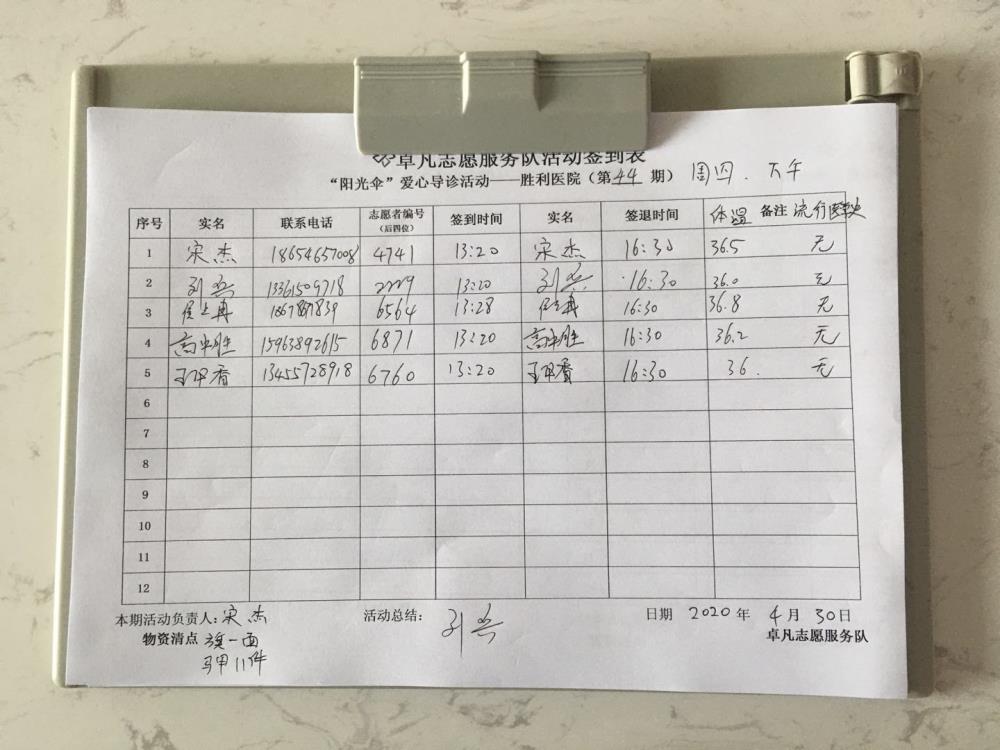 卓凡志愿服务队活动签到表
“阳光伞”爱心导诊活动——胜利医院（第44期） 周四．下午
序号 实名 联系电话 志愿者编号（后四位） 签到时间 实名 签退时间 体温 备注 流行病史
1 宋杰 18654657008 4741 13:20 宋杰 16:30 36.5 无
2 刘兴 13361509718 2229 13:20 刘兴 16:30 36.0 无
3 6564 13:28 16:30 36.8 无
4 高中胜 15963892615 6871 13:20 高中胜 16:30 36.2 无
5 13455728918 6760 13:20 16:30 36. 无
6
7
8
9
10
11
12
本期活动负责人：宋杰 活动总结： 刘兴 日期 2020年 4月 30日
物资清点 旗一面 卓凡志愿服务队
马甲11件